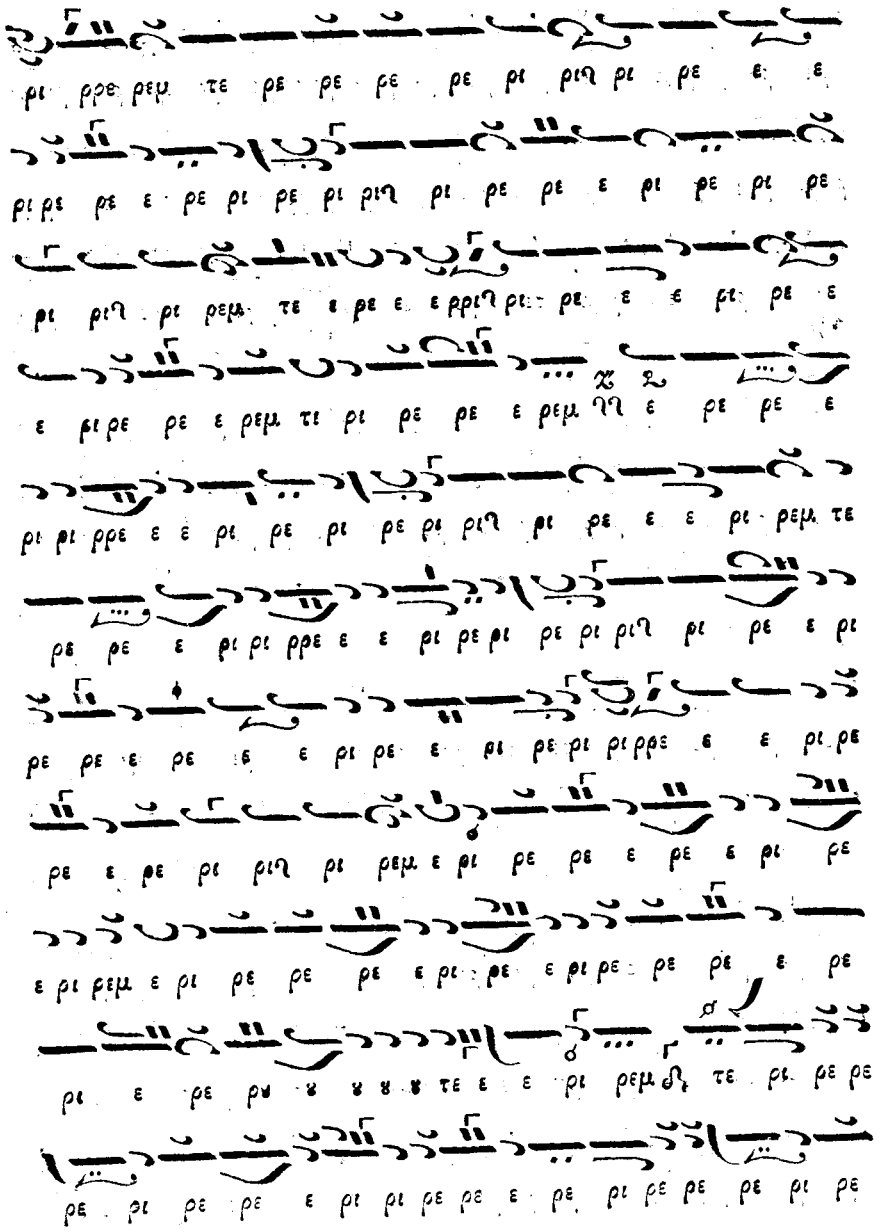 ρι ρρε ρεμ τε ρε ρε ρε ρε ρι ριϞ ρι ρε ε ε
ρι ρε ρε ε ρε ρι ρε ρι ριϞ ρι ρε ρε ε ρι ρε ρι ρε
ρι ριϞ ρι ρεμ τε ε ρε ε ε ρριϞ ρι ρε ε ε ρι ρε ε
ε ρι ρε ρε ε ρεμ τι ρι ρε ρε ε ρεμ ϞϞ ε ρε ρε ε
ρι ρι ρρε ε ε ρι ρε ρι ρε ρι ριϞ ρι ρε ε ε ρι ρεμ τε
ρε ρε ε ρι ρι ρρε ε ε ρι ρε ρι ρε ρι ριϞ ρι ρε ε ρι
ρε ρε ε ρε ε ε ρι ρε ε ρι ρε ρι ρι ρρε ε ε ρι ρε
ρε ε ρε ρι ριϞ ρι ρεμ ε ρι ρε ρε ε ρε ε ρι ρε
ε ρι ρεμ ε ρι ρε ρε ρε ε ρι ρε ε ρι ρε ρε ρε ε ρε
ρι ε ρε ρȣ ȣ ȣ ȣ ȣ τε ε ε ρι ρεμ τε ρι ρε ρε
ρε ρι ρε ρε ε ρι ρι ρε ρε ε ρε ρι ρε ρε ρε ρι ρε